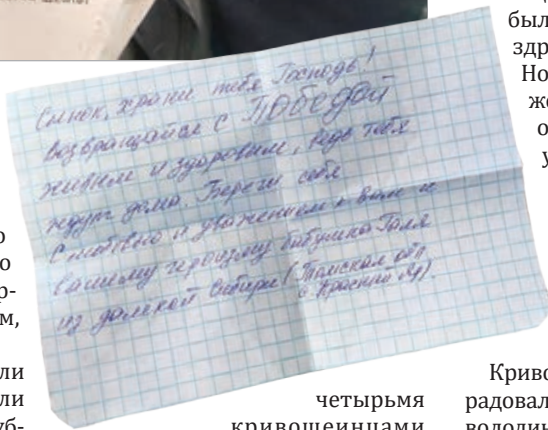 Сынок, храни тебя Господь!
Возвращайся с ПОБЕДОЙ
живым и здоровым, ведь тебя
ждут дома. Береги себя
С любовью и уважением к вам и
вашему героизму бабушка Галя
из далекой Сибири (Томская обл
с. Красный Яр)
был
здр
Но
же
о
у
о
о
р-
м,
ли
ли
уб-
четырьмя
кривошеинцами
Криво
радовал
володин